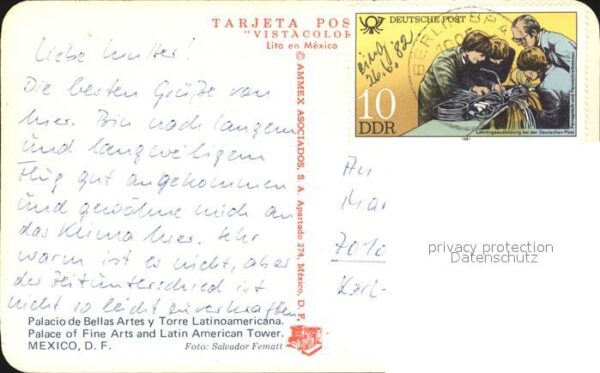 TARJETA POS
"VISTACOLOR
Lito en México
Liebe Mutter!
Die besten Grüße von
hier. Bin nach langem
und langweiligem
Flug gut angekommen
und gewöhne mich an
das Klima hier. Sehr
warm ist es nicht, aber
der Zeitunterschied ist
nicht so leicht zu verkraften.
© AMMEX ASOCIADOS, S. A. Apartado 274, México, D. F.
DEUTSCHE POST
BERLIN
10
DDR
Lehrlingsausbildung bei der Deutschen Post
1981
An
7010
Karl-
privacy protection
Datenschutz
Palacio de Bellas Artes y Torre Latinoamericana.
Palace of Fine Arts and Latin American Tower.
MEXICO, D. F.
Foto: Salvador Fematt